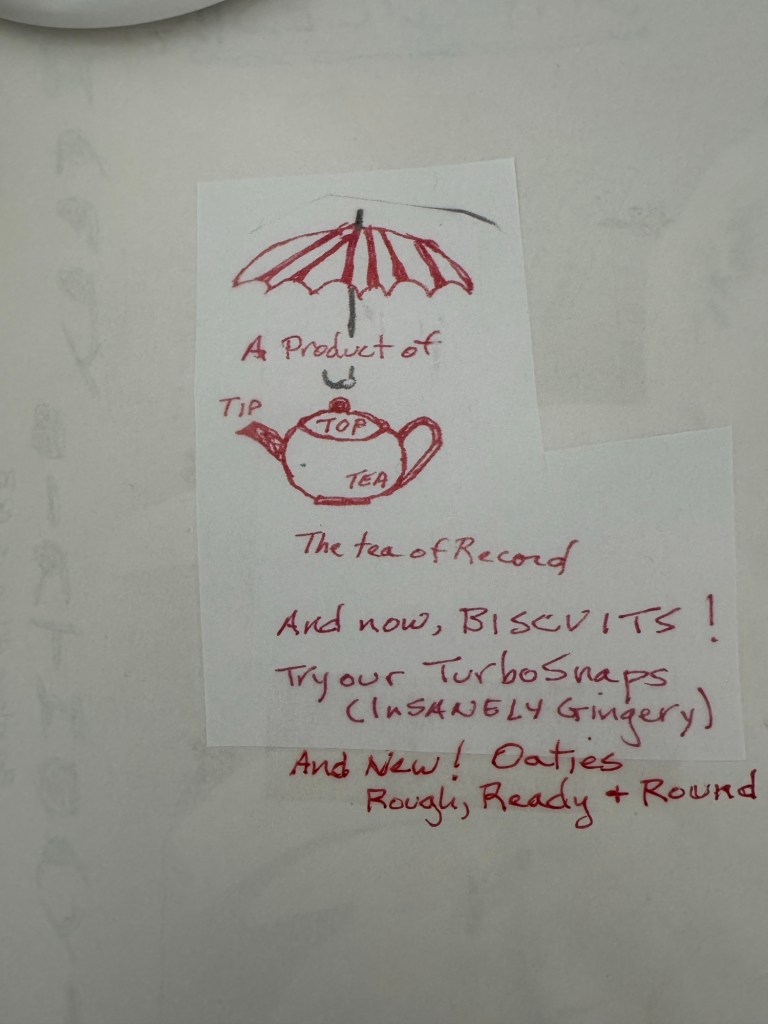 A Product of
TIP
TOP
TEA
The tea of Record
And now, BISCUITS!
Try our TurboSnaps
(InSANELY Gingery)
And New! Oaties
Rough, Ready + Round